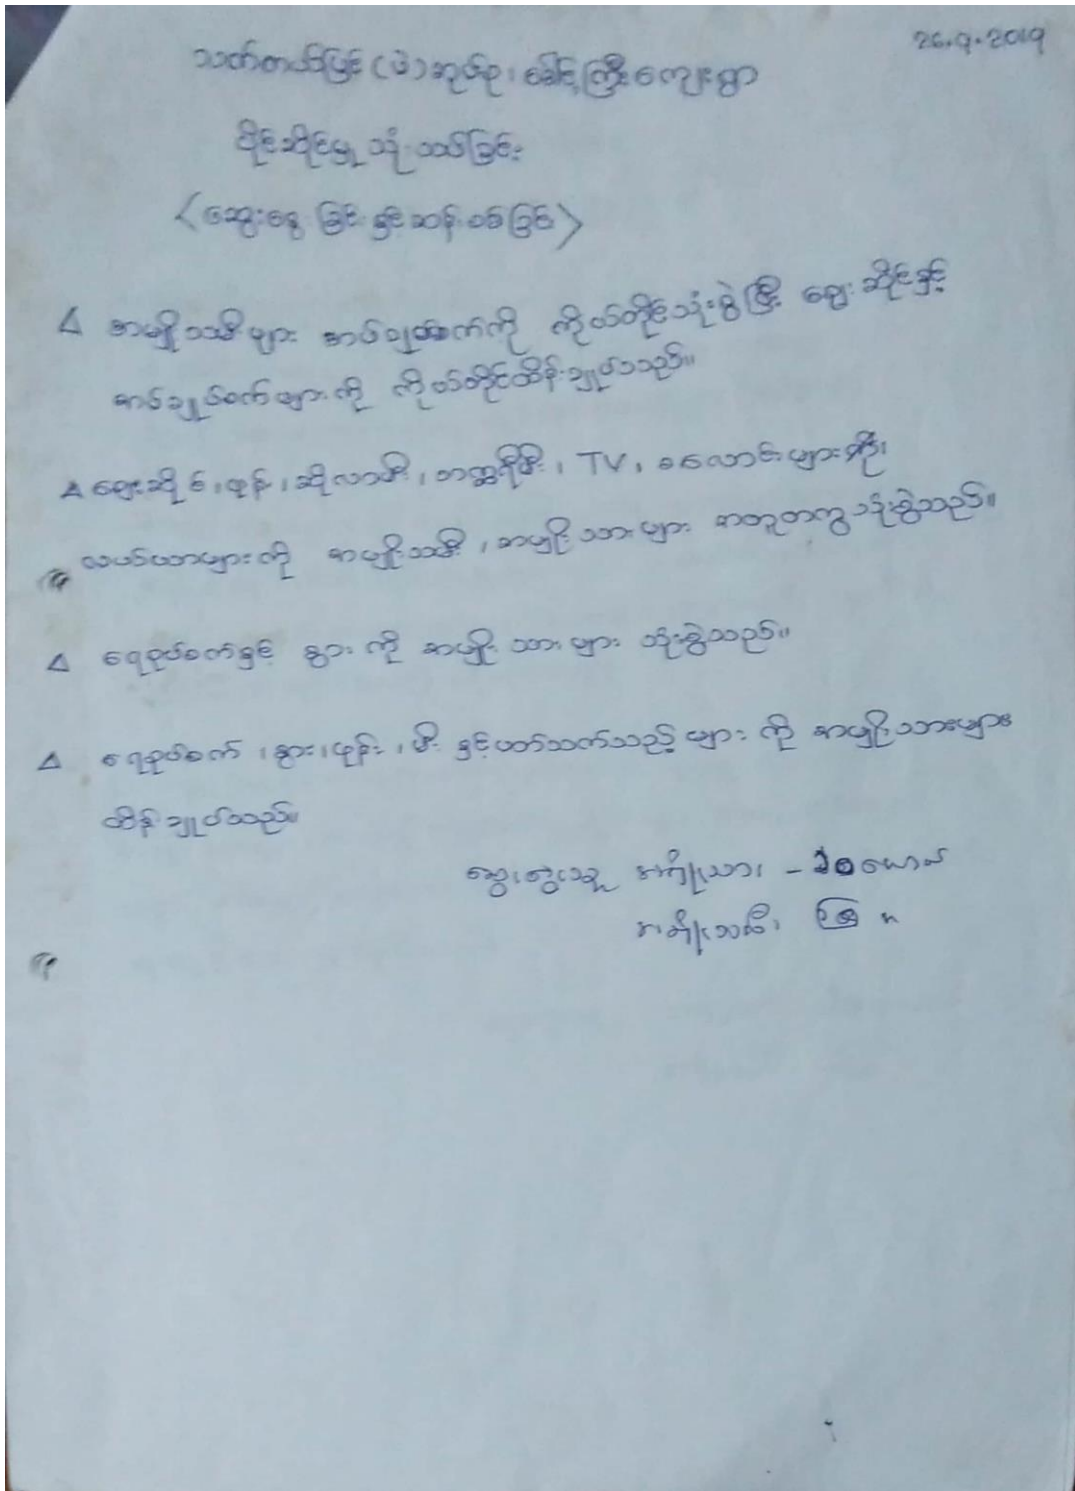 26.9.2019
သတ်တယ်ပြင်း (ဖဲ) အုပ်စု၊ ခေါင့်ကြီးကျေးရွာ
ပိုင်ဆိုင်မှု သုံးသပ်ခြင်း
〈ဆွေးနွေးခြင်းနှင့်ဆန်းစစ်ခြင်း〉
△ အမျိုးသမီးများ အပ်ချုပ်စက်ကို ကိုယ်တိုင်သုံးစွဲပြီး ဈေးဆိုင်နှင့်
အပ်ချုပ်စက်များကို ကိုယ်တိုင်ထိန်းချုပ်သည်။
△ ဈေးဆိုင်၊ ဖုန်း၊ ဆိုလာမီး၊ ဘက္ထရီမီး၊ TV၊ စလောင်းများကို၊
လယ်ယာများကို အမျိုးသမီး၊ အမျိုးသားများ အတူတကွ သုံးစွဲသည်။
△ ရေစုပ်စက်နှင့် နွားကို အမျိုးသားများ သုံးစွဲသည်။
△ ရေစုပ်စက်၊ နွား၊ ဖုန်း၊ မီးနှင့်ပတ်သက်သည့်များကို အမျိုးသားများ
ထိန်းချုပ်သည်။
ဆွေးနွေးသူ အမျိုးသား - ယောက်
အမျိုးသမီး